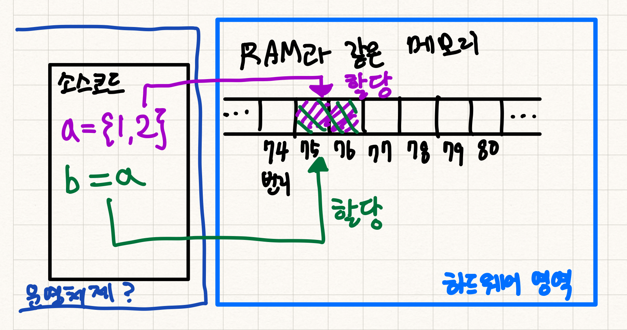 소스코드
a={1,2}
b=a
운영체제?
RAM과 같은 메모리
할당
... ...
74 75 76 77 78 79 80
번지
할당
하드웨어 영역